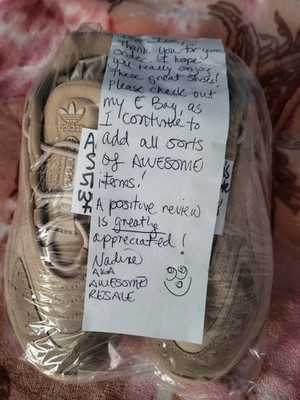 Thank you for your
order. I hope
you really enjoy
these great shoes!
Please check out
my E Bay, as
I continue to
add all sorts
of AWESOME
items!
A positive review
is greatly
appreciated!
Nadine
AKA
AWESOME
RESALE
adidas